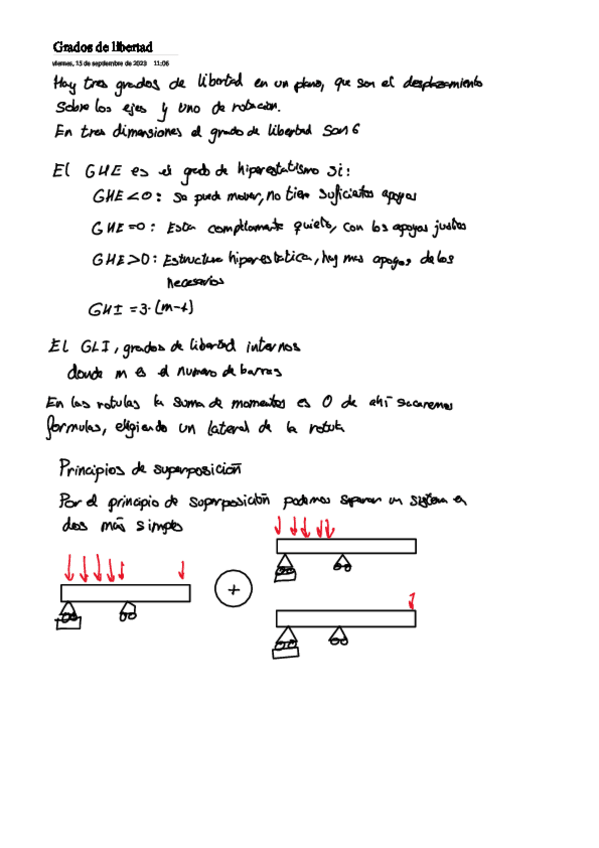 Grados de libertad
viernes, 15 de septiembre de 2023 11:06
Hay tres grados de libertad en un plano, que son el desplazamiento
sobre los ejes y uno de rotación.
En tres dimensiones el grado de libertad son 6
El GHE es el grado de hiperestatismo si:
GHE<0: se puede mover, no tiene suficientes apoyos
GHE=0: Esta completamente quieto, con los apoyos justos
GHE>0: Estructura hiperestatica, hay mas apoyos de los
necesarios
GHI = 3·(m-1)
El GLI, grados de libertad internos
donde m es el numero de barras
En las rotulas la suma de momentos es 0 de ahí sacaremos
formulas, eligiendo un lateral de la rotula
Principios de superposición
Por el principio de superposición podemos separar un sistema en
dos más simples
+